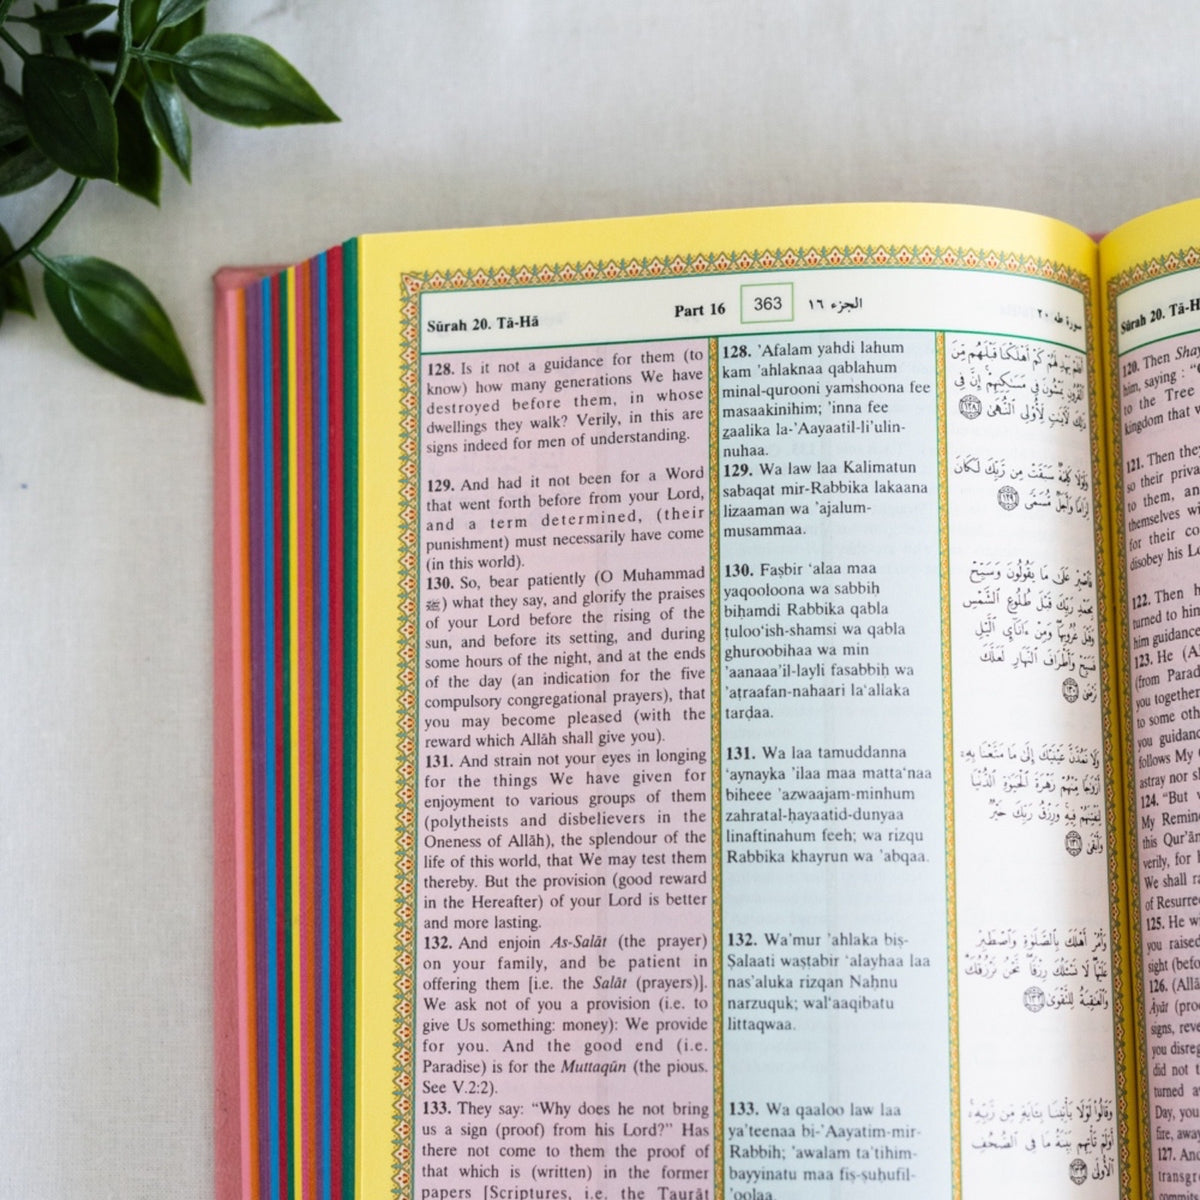 Sūrah 20. Tā-Hā
Part 16
363
الجزء ١٦
سورة طه ٢٠
128. Is it not a guidance for them (to
know) how many generations We have
destroyed before them, in whose
dwellings they walk? Verily, in this are
signs indeed for men of understanding.
129. And had it not been for a Word
that went forth before from your Lord,
and a term determined, (their
punishment) must necessarily have come
(in this world).
130. So, bear patiently (O Muhammad
ﷺ) what they say, and glorify the praises
of your Lord before the rising of the
sun, and before its setting, and during
some hours of the night, and at the ends
of the day (an indication for the five
compulsory congregational prayers), that
you may become pleased (with the
reward which Allāh shall give you).
131. And strain not your eyes in longing
for the things We have given for
enjoyment to various groups of them
(polytheists and disbelievers in the
Oneness of Allāh), the splendour of the
life of this world, that We may test them
thereby. But the provision (good reward
in the Hereafter) of your Lord is better
and more lasting.
132. And enjoin As-Salāt (the prayer)
on your family, and be patient in
offering them [i.e. the Salāt (prayers)].
We ask not of you a provision (i.e. to
give Us something: money): We provide
for you. And the good end (i.e.
Paradise) is for the Muttaqūn (the pious.
See V.2:2).
133. They say: “Why does he not bring
us a sign (proof) from his Lord?” Has
there not come to them the proof of
that which is (written) in the former
papers [Scriptures, i.e. the Taurāt
128. ’Afalam yahdi lahum
kam ’ahlaknaa qablahum
minal-qurooni yamshoona fee
masaakinihim; ’inna fee
zaalika la-’Aayaatil-li’ulin-
nuhaa.
129. Wa law laa Kalimatun
sabaqat mir-Rabbika lakaana
lizaaman wa ’ajalum-
musammaa.
130. Faṣbir ‘alaa maa
yaqooloona wa sabbiḥ
biḥamdi Rabbika qabla
ṭuloo‘ish-shamsi wa qabla
ghuroobihaa wa min
’aanaaa’il-layli fasabbiḥ wa
’aṭraafan-nahaari la‘allaka
tarḍaa.
131. Wa laa tamuddanna
‘aynayka ’ilaa maa matta‘naa
biheee ’azwaajam-minhum
zahratal-ḥayaatid-dunyaa
linaftinahum feeh; wa rizqu
Rabbika khayrun wa ’abqaa.
132. Wa’mur ’ahlaka biṣ-
Ṣalaati waṣṭabir ‘alayhaa laa
nas’aluka rizqan Naḥnu
narzuquk; wal‘aaqibatu
littaqwaa.
133. Wa qaaloo law laa
ya’teenaa bi-’Aayatim-mir-
Rabbih; ’awalam ta’tihim-
bayyinatu maa fiṣ-ṣuḥufil-
’oolaa.
أَفَلَمْ يَهْدِ لَهُمْ كَمْ أَهْلَكْنَا قَبْلَهُم مِّنَ
ٱلْقُرُونِ يَمْشُونَ فِى مَسَـٰكِنِهِمْ إِنَّ فِى
ذَٰلِكَ لَـَٔايَـٰتٍ لِّأُو۟لِى ٱلنُّهَىٰ ١٢٨
وَلَوْلَا كَلِمَةٌ سَبَقَتْ مِن رَّبِّكَ لَكَانَ
لِزَامًا وَأَجَلٌ مُّسَمًّى ١٢٩
فَٱصْبِرْ عَلَىٰ مَا يَقُولُونَ وَسَبِّحْ
بِحَمْدِ رَبِّكَ قَبْلَ طُلُوعِ ٱلشَّمْسِ
وَقَبْلَ غُرُوبِهَا وَمِنْ ءَانَآئِ ٱلَّيْلِ
فَسَبِّحْ وَأَطْرَافَ ٱلنَّهَارِ لَعَلَّكَ
تَرْضَىٰ ١٣٠
وَلَا تَمُدَّنَّ عَيْنَيْكَ إِلَىٰ مَا مَتَّعْنَا بِهِۦٓ
أَزْوَٰجًا مِّنْهُمْ زَهْرَةَ ٱلْحَيَوٰةِ ٱلدُّنْيَا
لِنَفْتِنَهُمْ فِيهِ وَرِزْقُ رَبِّكَ خَيْرٌ
وَأَبْقَىٰ ١٣١
وَأْمُرْ أَهْلَكَ بِٱلصَّلَوٰةِ وَٱصْطَبِرْ
عَلَيْهَا لَا نَسْـَٔلُكَ رِزْقًا نَّحْنُ نَرْزُقُكَ
وَٱلْعَـٰقِبَةُ لِلتَّقْوَىٰ ١٣٢
وَقَالُوا۟ لَوْلَا يَأْتِينَا بِـَٔايَةٍ مِّن رَّبِّهِۦٓ
أَوَلَمْ تَأْتِهِم بَيِّنَةُ مَا فِى ٱلصُّحُفِ
ٱلْأُولَىٰ ١٣٣
Sūrah 20. Tā-H
120. Then Shay
him, saying : “
to the Tree
kingdom that
121. Then they
so their priva
to them, an
themselves wi
for their co
disobey his L
122. Then h
turned to him
him guidance
123. He (A
(from Parad
you together
to some oth
you guidanc
follows My
astray nor s
124. “But
My Remin
this Qur’ān
verily, for
We shall ra
of Resurre
125. He w
you raised
sight (befo
126. (Allā
Āyāt (proo
signs, reve
you disreg
did not t
turned a
Day, you
fire, away
127. And
transg